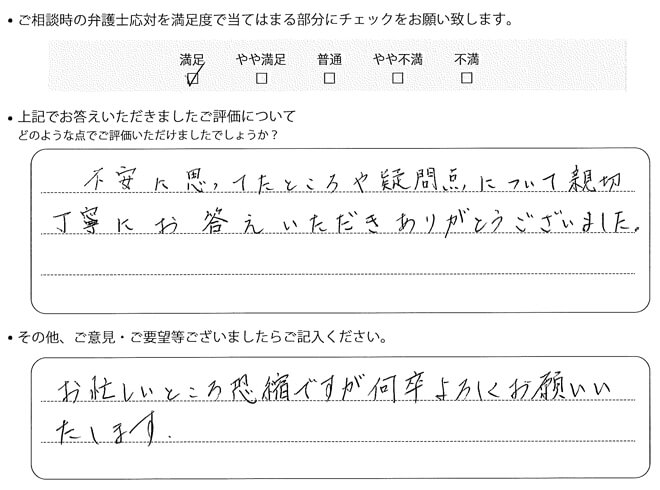 • ご相談時の弁護士応対を満足度で当てはまる部分にチェックをお願い致します。
満足 やや満足 普通 やや不満 不満
☑ □ □ □ □
• 上記でお答えいただきましたご評価について
どのような点でご評価いただけましたでしょうか？
不安に思ってたところや疑問点について親切
丁寧にお答えいただきありがとうございました。
• その他、ご意見・ご要望等ございましたらご記入ください。
お忙しいところ恐縮ですが何卒よろしくお願いい
たします.